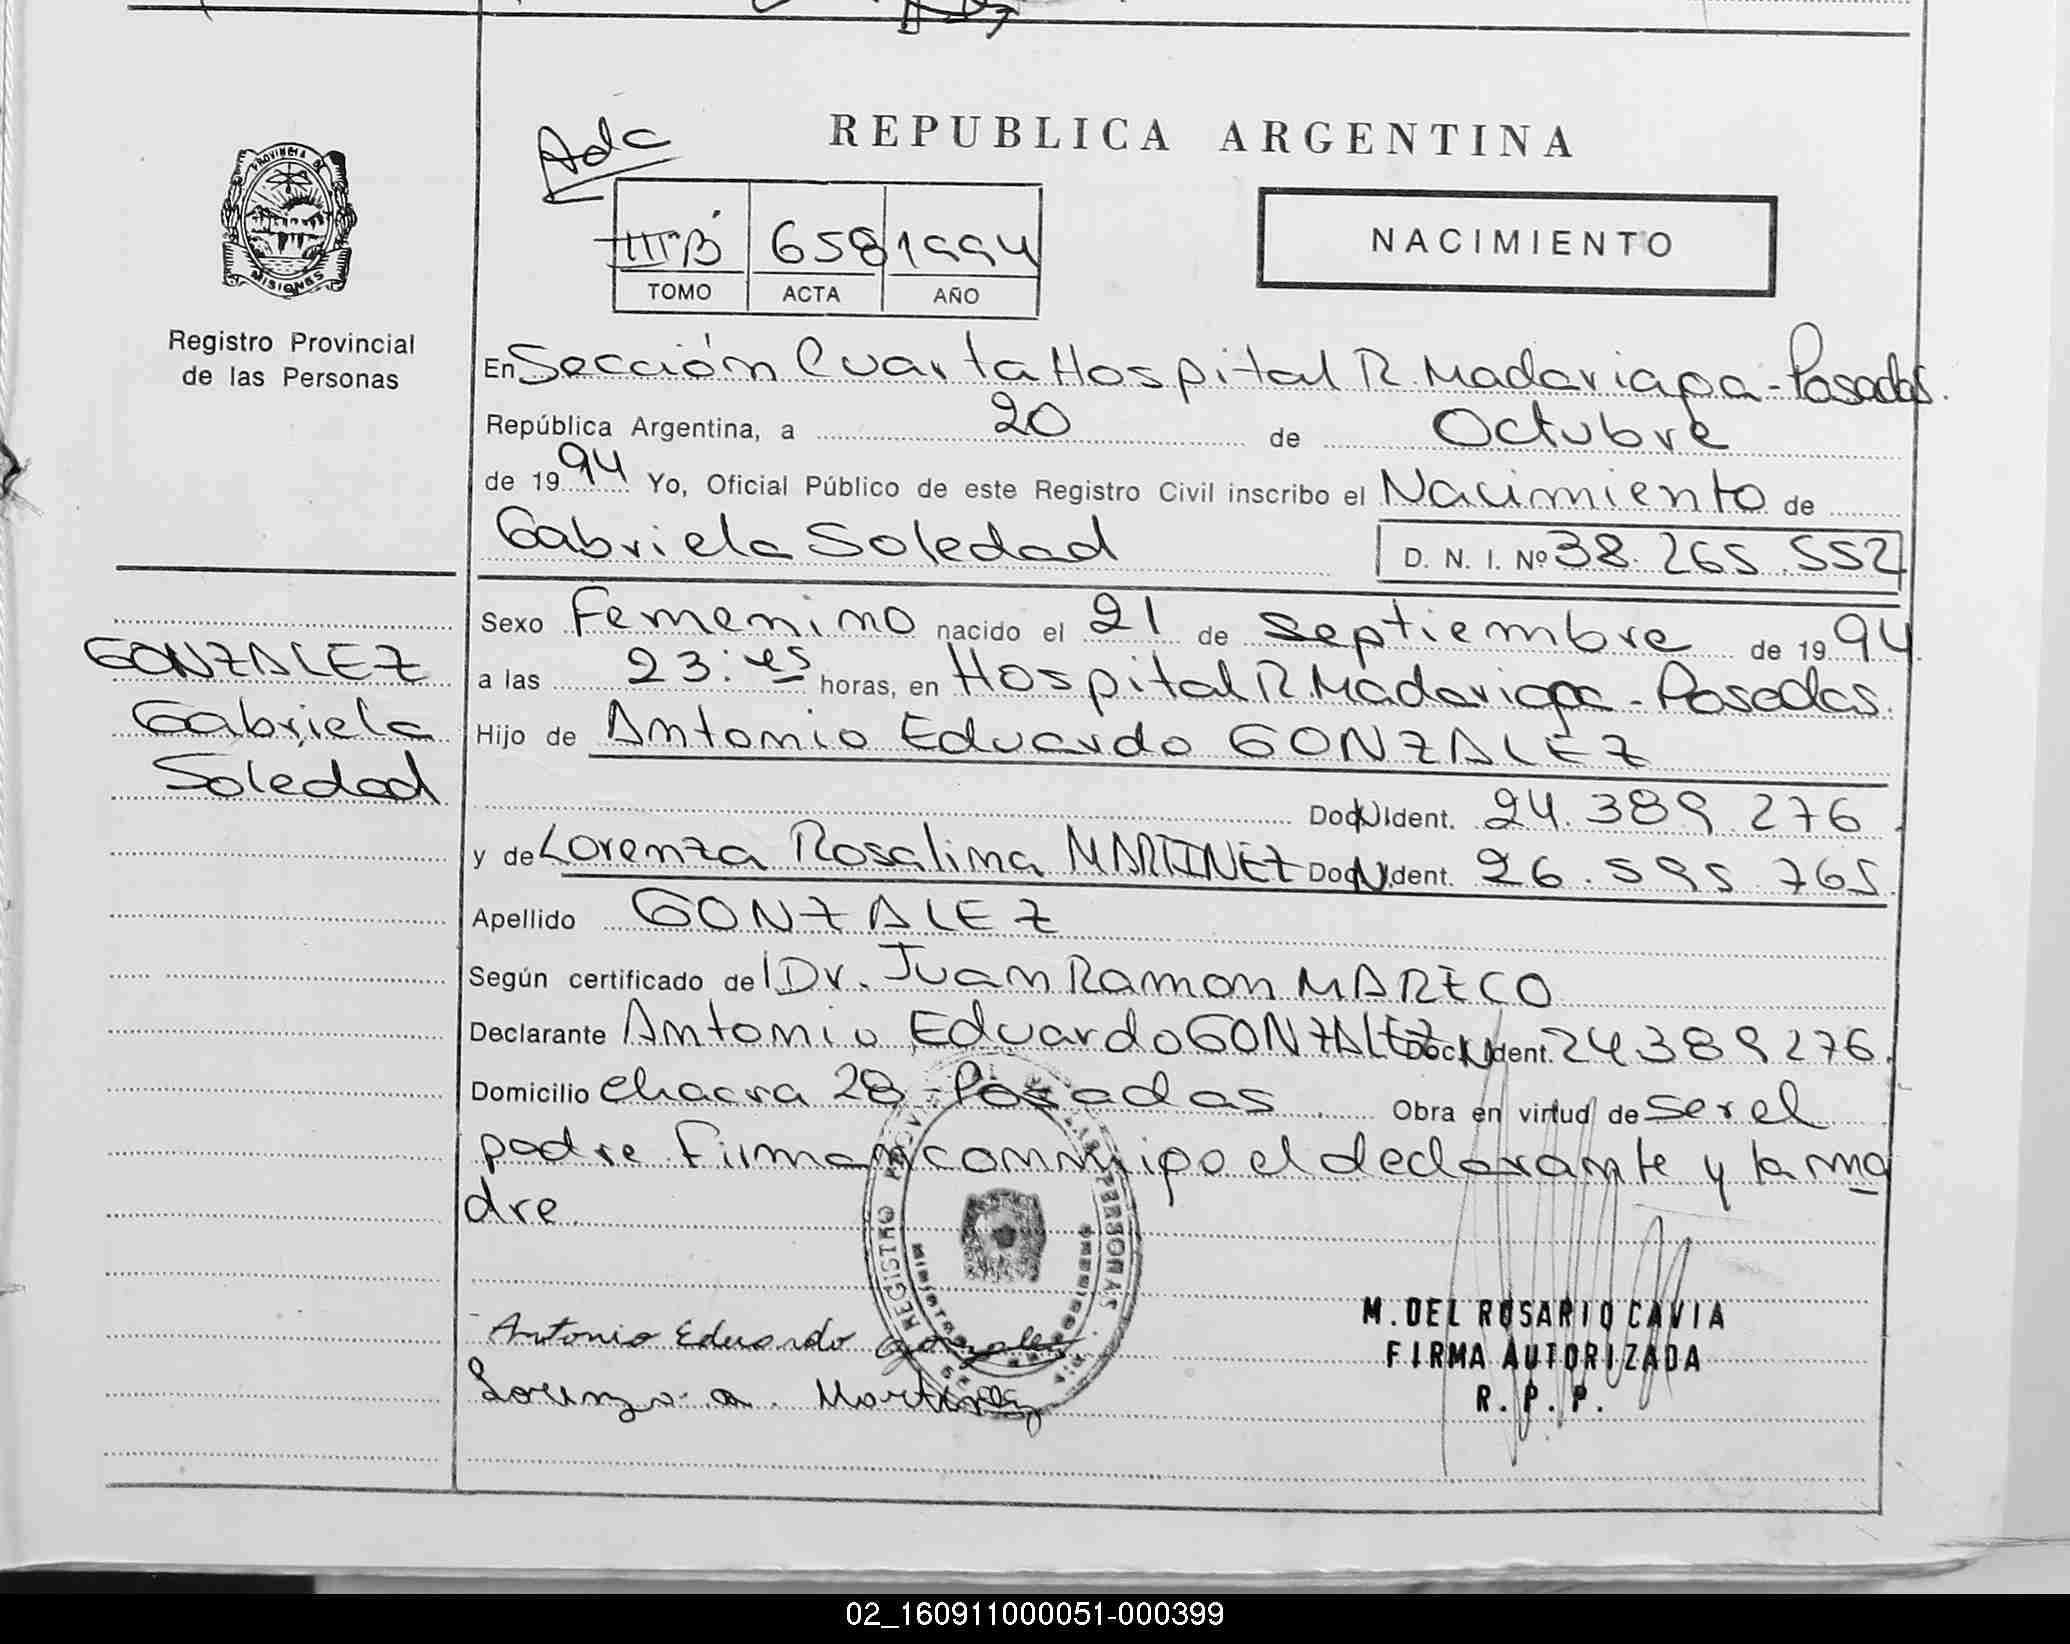 Adc
REPUBLICA ARGENTINA
NACIMIENTO
IIIºB 658 1994
TOMO ACTA AÑO
PROVINCIA DE MISIONES
Registro Provincial
de las Personas
En Sección Cuarta Hospital R. Madariaga - Posadas.
República Argentina, a 20 de Octubre
de 1994 Yo, Oficial Público de este Registro Civil inscribo el Nacimiento de
Gabriela Soledad D. N. I. Nº 38.265.552
GONZALEZ
Gabriela
Soledad
Sexo Femenino nacido el 21 de septiembre de 1994
a las 23: horas, en Hospital R. Madariaga - Posadas.
Hijo de Antonio Eduardo GONZALEZ
Doc. Ident. 24.389.276
y de Lorenza Rosalina MARTINEZ Doc. Ident. 26.595.765
Apellido GONZALEZ
Según certificado de Dr. Juan Ramon MARECO
Declarante Antonio Eduardo GONZALEZ Doc. Ident. 24389276
Domicilio chacra 28 - Posadas Obra en virtud de ser el
padre Firman conmigo el declarante y la ma
dre.
REGISTRO PROV. DE LAS PERSONAS
Antonio Eduardo Gonzalez
M. DEL ROSARIO CAVIA
FIRMA AUTORIZADA
R. P. P.
Martinez
02_160911000051-000399